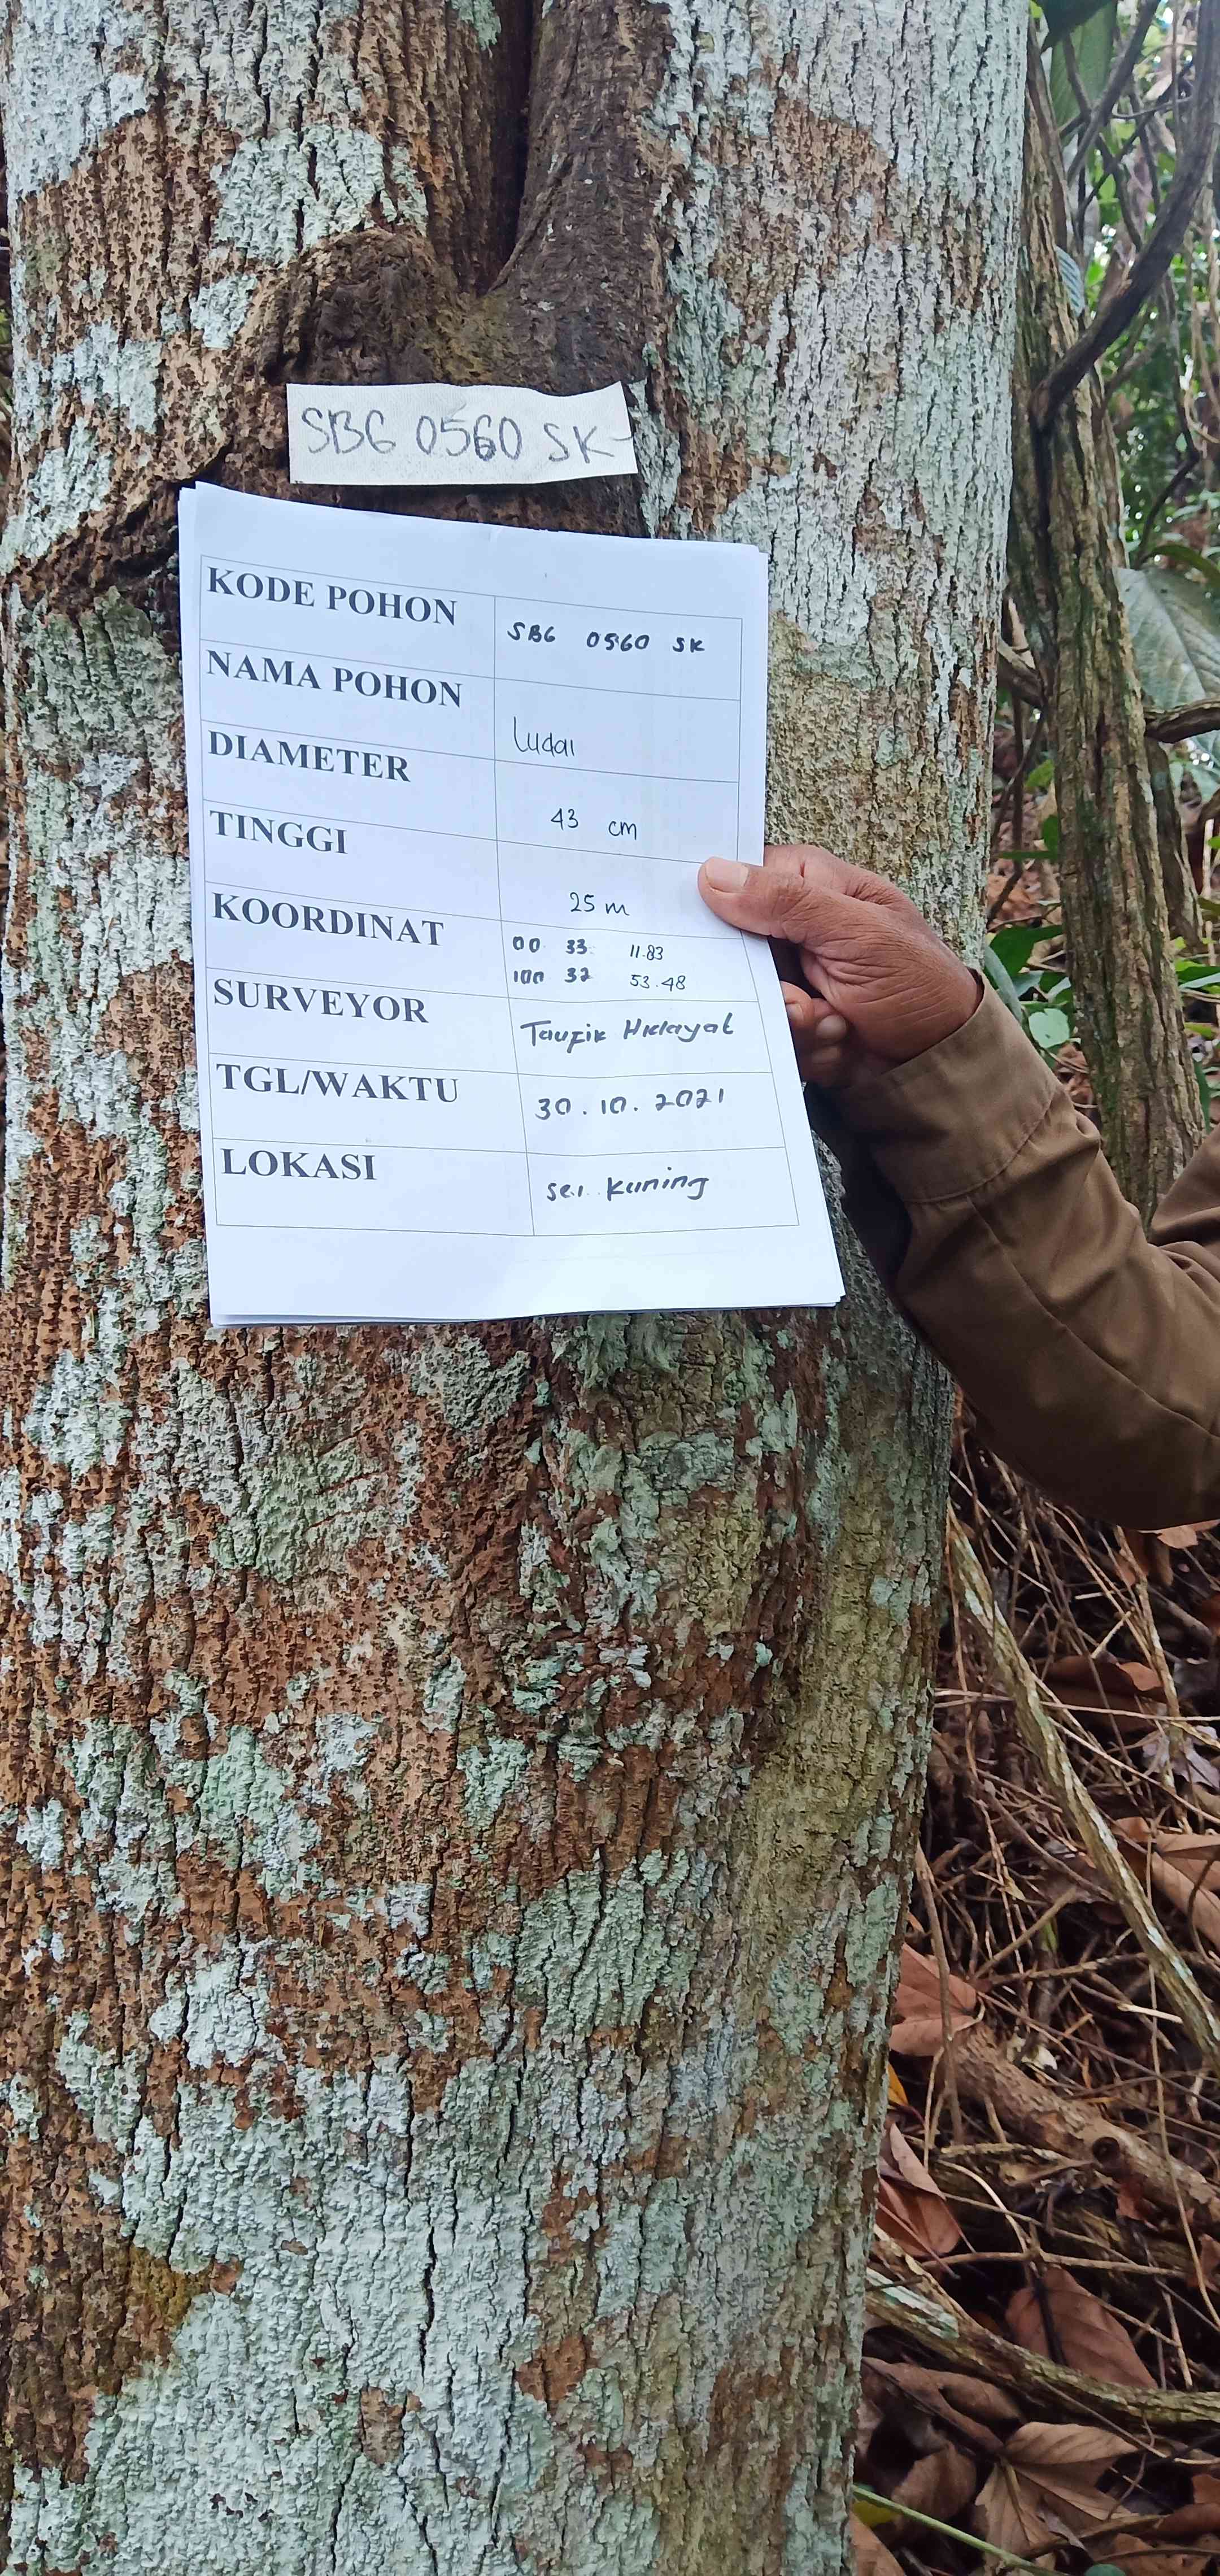 SBG 0560 SK
KODE POHON SBG 0560 SK
NAMA POHON Ludai
DIAMETER 43 cm
TINGGI 25 m
KOORDINAT 00 33 11.83
100 32 53.48
SURVEYOR Taufik Hidayat
TGL/WAKTU 30.10.2021
LOKASI sei. kuning